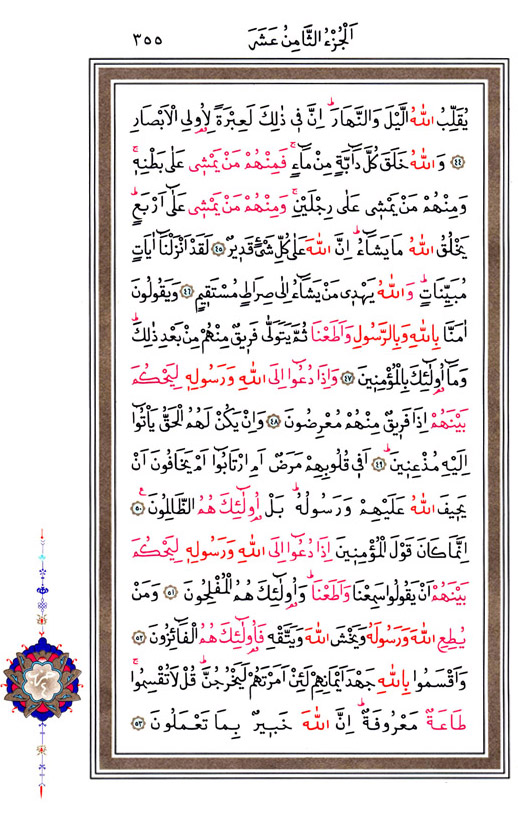 اَلْجُزْءُ الثَّامِنُ عَشَرَ ٣٥٥
يُقَلِّبُ اللّٰهُ الَّيْلَ وَالنَّهَارَۜ اِنَّ ف۪ي ذٰلِكَ لَعِبْرَةً لِاُو۬لِي الْاَبْصَارِ
﴿٤٤﴾ وَاللّٰهُ خَلَقَ كُلَّ دَٓابَّةٍ مِنْ مَٓاءٍۚ فَمِنْهُمْ مَنْ يَمْش۪ي عَلٰى بَطْنِه۪ۚ
وَمِنْهُمْ مَنْ يَمْش۪ي عَلٰى رِجْلَيْنِۚ وَمِنْهُمْ مَنْ يَمْش۪ي عَلٰٓى اَرْبَعٍۜ
يَخْلُقُ اللّٰهُ مَا يَشَٓاءُۜ اِنَّ اللّٰهَ عَلٰى كُلِّ شَيْءٍ قَد۪يرٌ ﴿٤٥﴾ لَقَدْ اَنْزَلْنَٓا اٰيَاتٍ
مُبَيِّنَاتٍۜ وَاللّٰهُ يَهْد۪ي مَنْ يَشَٓاءُ اِلٰى صِرَاطٍ مُسْتَق۪يمٍ ﴿٤٦﴾ وَيَقُولُونَ
اٰمَنَّا بِاللّٰهِ وَبِالرَّسُولِ وَاَطَعْنَا ثُمَّ يَتَوَلّٰى فَر۪يقٌ مِنْهُمْ مِنْ بَعْدِ ذٰلِكَۜ
وَمَٓا اُو۬لٰٓئِكَ بِالْمُؤْمِن۪ينَ ﴿٤٧﴾ وَاِذَا دُعُٓوا اِلَى اللّٰهِ وَرَسُولِه۪ لِيَحْكُمَ
بَيْنَهُمْ اِذَا فَر۪يقٌ مِنْهُمْ مُعْرِضُونَ ﴿٤٨﴾ وَاِنْ يَكُنْ لَهُمُ الْحَقُّ يَأْتُٓوا
اِلَيْهِ مُذْعِن۪ينَۜ ﴿٤٩﴾ اَف۪ي قُلُوبِهِمْ مَرَضٌ اَمِ ارْتَابُٓوا اَمْ يَخَافُونَ اَنْ
يَح۪يفَ اللّٰهُ عَلَيْهِمْ وَرَسُولُهُۜ بَلْ اُو۬لٰٓئِكَ هُمُ الظَّالِمُونَ۟ ﴿٥٠﴾
اِنَّمَا كَانَ قَوْلَ الْمُؤْمِن۪ينَ اِذَا دُعُٓوا اِلَى اللّٰهِ وَرَسُولِه۪ لِيَحْكُمَ
بَيْنَهُمْ اَنْ يَقُولُوا سَمِعْنَا وَاَطَعْنَاۜ وَاُو۬لٰٓئِكَ هُمُ الْمُفْلِحُونَ ﴿٥١﴾ وَمَنْ
يُطِعِ اللّٰهَ وَرَسُولَهُ وَيَخْشَ اللّٰهَ وَيَتَّقْهِ فَاُو۬لٰٓئِكَ هُمُ الْفَٓائِزُونَ ﴿٥٢﴾
وَاَقْسَمُوا بِاللّٰهِ جَهْدَ اَيْمَانِهِمْ لَئِنْ اَمَرْتَهُمْ لَيَخْرُجُنَّۜ قُلْ لَا تُقْسِمُواۚ
طَاعَةٌ مَعْرُوفَةٌۜ اِنَّ اللّٰهَ خَب۪يرٌ بِمَا تَعْمَلُونَ ﴿٥٣﴾